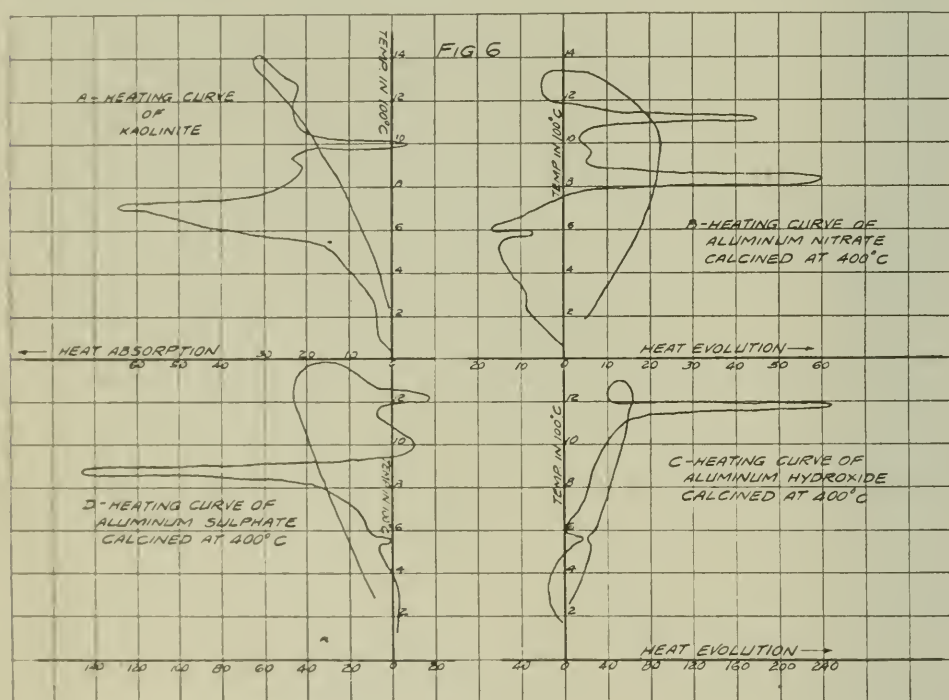 FIG 6
TEMP IN 100°C
14
12
10
8
6
4
2
A-HEATING CURVE
OF
KAOLINITE
TEMP IN 100°C
14
12
10
8
6
4
2
B-HEATING CURVE OF
ALUMINUM NITRATE
CALCINED AT 400°C
← HEAT ABSORPTION
60 30 20 10
HEAT EVOLUTION →
20 10 0 10 20 30 40 50 60
12
10
8
6
4
2
TEMP IN 100°C
D-HEATING CURVE OF
ALUMINUM SULPHATE
CALCINED AT 400°C
TEMP IN 100°C
12
10
8
6
4
2
C-HEATING CURVE OF
ALUMINUM HYDROXIDE
CALCINED AT 400°C
140 120 100 80 60 40 20 0 20
HEAT EVOLUTION →
0 40 80 120 160 200 240